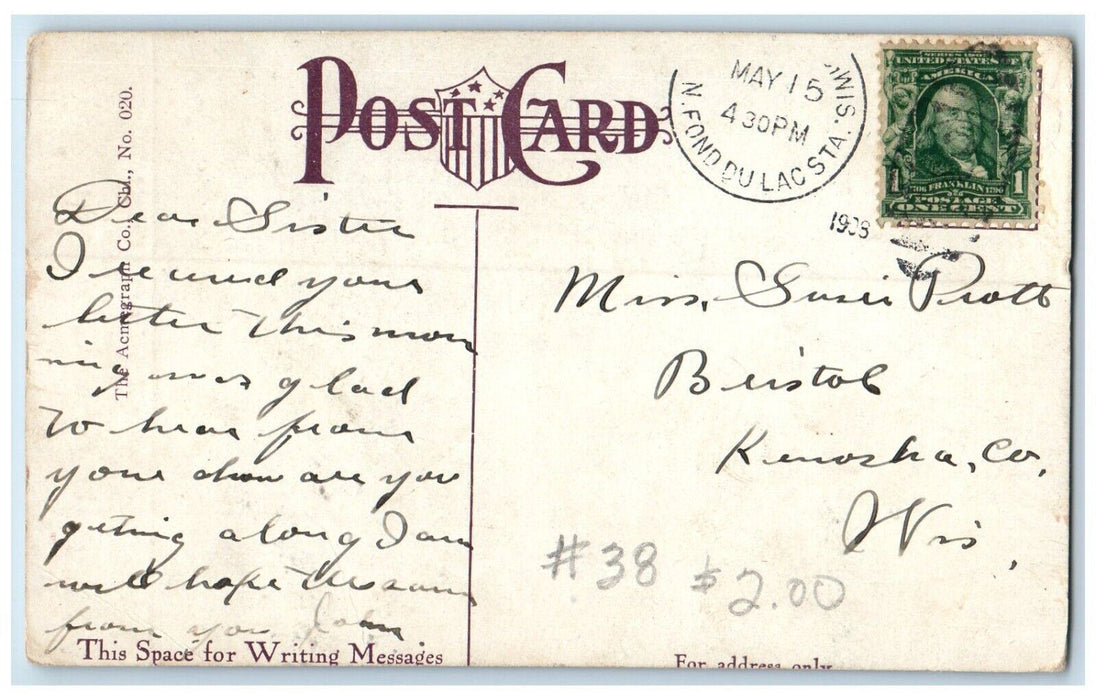 POST CARD
The Acmegraph Co., Chi., No. 020.
N. FOND DU LAC STA. WIS.
MAY 15
4 30 PM
1908
SERIES 1902
UNITED STATES OF
AMERICA
1 FRANKLIN 1790 1
POSTAGE
ONE CENT
Dear Sister
I recived your
letter this mor
ning was glad
to hear from
you how are you
getting along I am
well hope the same
from you. John
This Space for Writing Messages
Miss. Susie Pratt
Bristol
Kenosha, Co.
Wis.
#38 $2.00
For address only